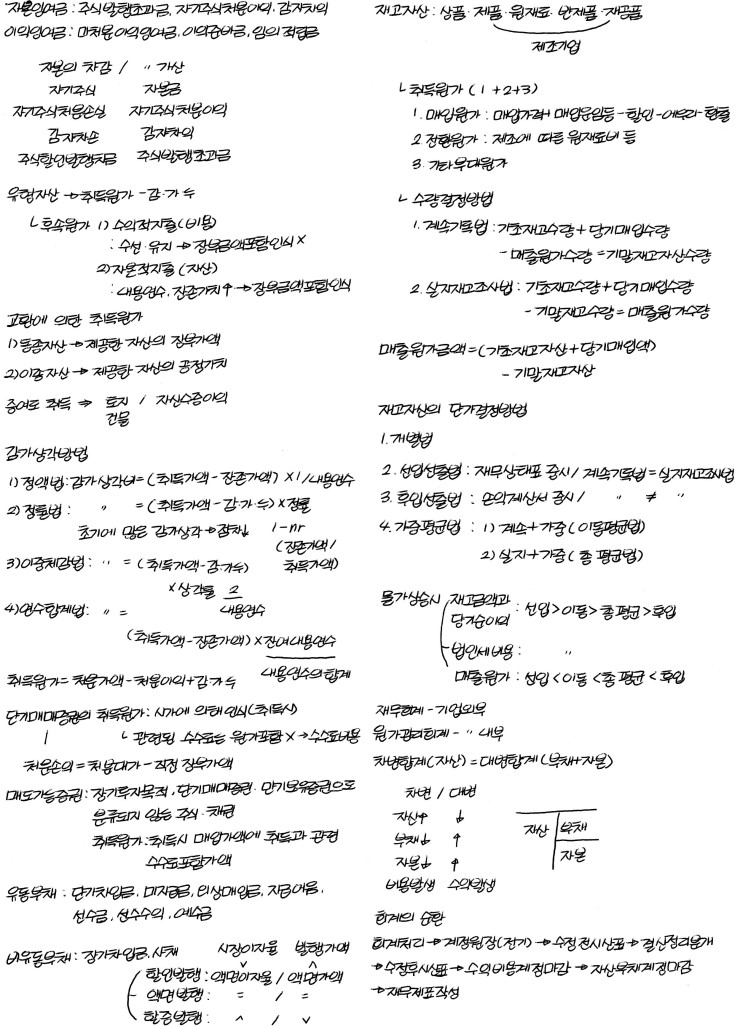 자본잉여금 : 주식발행초과금, 자기주식처분이익, 감자차익
이익잉여금 : 미처분이익잉여금, 이익준비금, 임의적립금
자본의 차감 / 〃 가산
자기주식 자본금
자기주식처분손실 자기주식처분이익
감자차손 감자차익
주식할인발행차금 주식발행초과금
유형자산 → 취득원가 - 감·가·누
ㄴ후속원가 1) 수익적지출 (비용)
: 수선·유지 → 장부금액포함인식 X
2) 자본적지출 (자산)
: 내용연수, 잔존가치↑ → 장부금액포함인식
교환에 의한 취득원가
1) 동종자산 → 제공한 자산의 장부가액
2) 이종자산 → 제공한 자산의 공정가치
증여로 취득 ⇒ 토지 / 자산수증이익
건물
감가상각방법
1) 정액법 : 감가상각비 = (취득가액 - 잔존가액) × 1/내용연수
2) 정률법 : 〃 = (취득가액 - 감·가·누) × 정률
초기에 많은 감가상각 → 점차↓ 1-n√
(잔존가액/
취득가액)
3) 이중체감법 : 〃 = (취득가액 - 감·가누)
× 상각률 2
내용연수
4) 연수합계법 : 〃 =
(취득가액 - 잔존가액) × 잔여내용연수
내용연수의 합계
취득원가 = 처분가액 - 처분이익 + 감·가·누
단기매매증권의 취득원가 : 시가에 의해 인식 (취득시)
ㄴ 관련된 수수료는 원가포함 X → 수수료비용
처분손익 = 처분대가 - 직전 장부가액
매도가능증권 : 장기투자목적, 단기매매증권·만기보유증권으로
분류되지 않는 주식·채권
취득원가 : 취득시 매입가액에 취득과 관련
수수료포함가액
유동부채 : 단기차입금, 미지급금, 외상매입금, 지급어음,
선수금, 선수수익, 예수금
비유동부채 : 장기차입금, 사채 시장이자율 발행가액
할인발행 : 액면이자율 / 액면가액
액면발행 : = / =
할증발행 : ^ / v
재고자산 : 상품·제품·원재료·반제품·재공품
제조기업
ㄴ취득원가 (1+2+3)
1. 매입원가 : 매입가격 + 매입운임등 - 할인 - 에누리 - 환출
2. 전환원가 : 제조에 따른 원재료비 등
3. 기타부대원가
ㄴ 수량결정방법
1. 계속기록법 : 기초재고수량 + 당기매입수량
- 매출원가수량 = 기말재고자산수량
2. 실지재고조사법 : 기초재고수량 + 당기매입수량
- 기말재고수량 = 매출원가수량
매출원가금액 = (기초재고자산 + 당기매입액)
- 기말재고자산
재고자산의 단가결정방법
1. 개별법
2. 선입선출법 : 재무상태표 중시 / 계속기록법 = 실지재고조사법
3. 후입선출법 : 손익계산서 중시 / 〃 ≠ 〃
4. 가중평균법 : 1) 계속 + 가중 (이동평균법)
2) 실지 + 가중 (총 평균법)
물가상승시 재고금액과
당기순이익 : 선입 > 이동 > 총평균 > 후입
법인세비용 : 〃
매출원가 : 선입 < 이동 < 총평균 < 후입
재무회계 - 기업외부
원가관리회계 - 〃 내부
차변합계 (자산) = 대변합계 (부채 + 자본)
차변 / 대변
자산↑ ↓
부채↓ ↑
자본↓ ↑
비용발생 수익발생
자산 부채
자본
회계의 순환
회계처리 → 계정원장 (전기) → 수정전시산표 → 결산정리분개
→ 수정후시산표 → 수익비용계정마감 → 자산부채계정마감
→ 재무제표작성